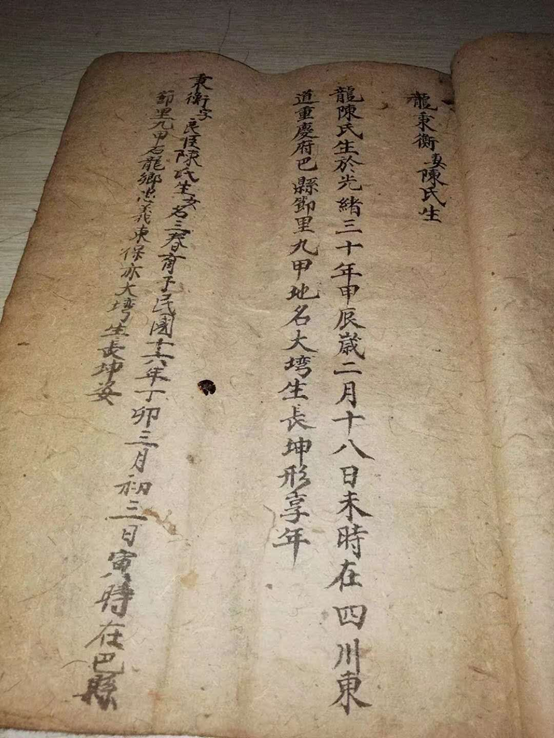 龍秉衡妻陳氏生
龍陳氏生於光緒三十年甲辰歲二月十八日未時在四川東
道重慶府巴縣節里九甲地名大塆生長坤形享年
秉衡字良臣陳氏生女名三春育于民國十六年丁卯三月初三日寅時在巴縣
節里九甲石龍鄉忠義東保亦大塆生長坤姿